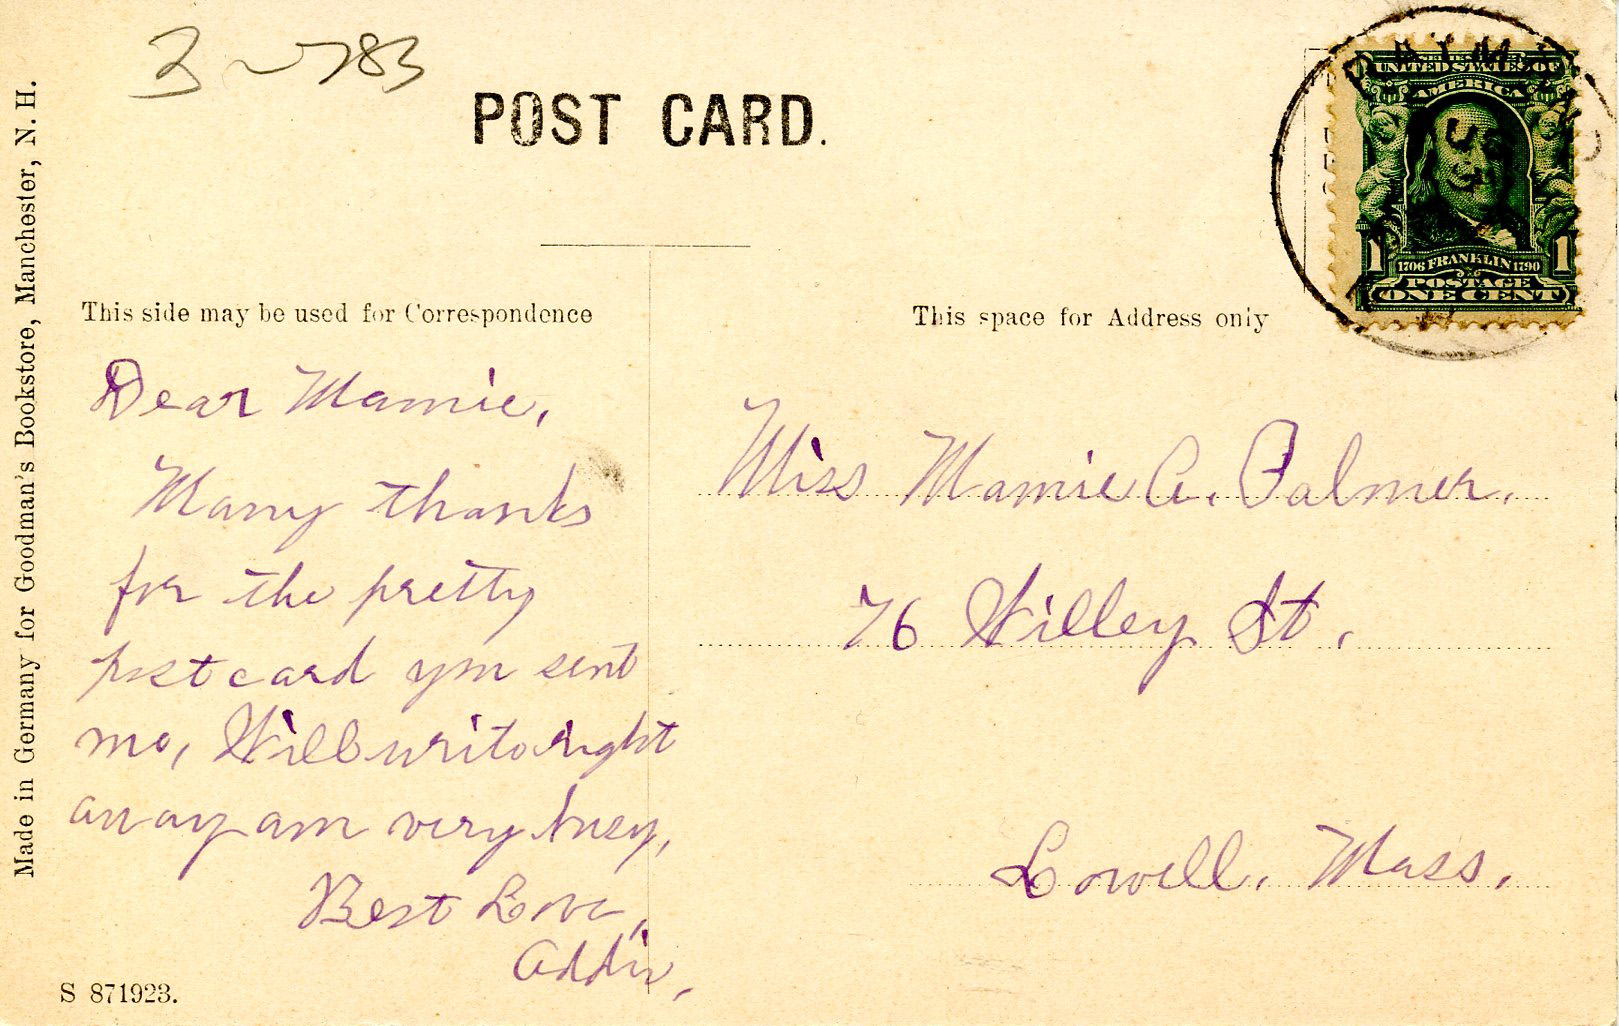 3 783
POST CARD.
Made in Germany for Goodman's Bookstore, Manchester, N. H.
This side may be used for Correspondence
Dear Mamie,
Many thanks
for the pretty
postcard you sent
me, Will write right
away am very busy,
Best Love,
Addie,
S 871923.
UNITED STATES OF
AMERICA
1706 FRANKLIN 1790
1 1
POSTAGE
ONE CENT
This space for Address only
Miss Mamie A. Palmer.
76 Willey St.,
Lowell, Mass.